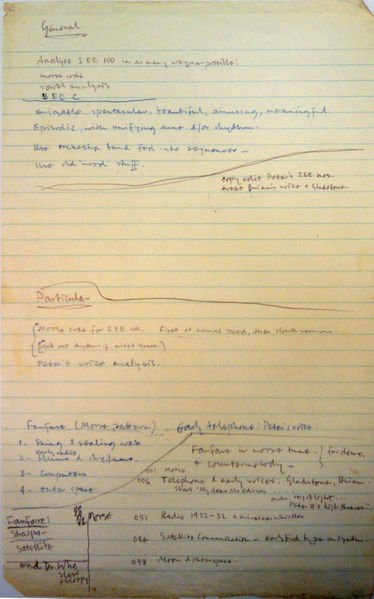 General
Analyse IEE 100 in as many ways as possible:
morse code
vowel analysis
enjoyable, spectacular, beautiful, amusing, meaningful.
Episodic, with unifying tune &/or rhythm.
Use orchestra and fed into sequencer
Use old mood stuff.
copy edit Peter's IEE nos.
treat Brian's voice + Gladstone
Particular
(Morse code for IEE 100. First at normal speed, then slow version.
rhythm of mixed
Peter's voice analysis.
Fanfare (Morse pattern). early telephone: Peter's voice.
1. String & sealing wax
early radio
2 -
3 - Computers
4 - outer space
Fanfare in morse tune - for demo.
+ countermelody -
001 Morse
006 Telephone & early voices. Gladstone, Brian.
Start "My dear Mr Edison
Fanfare:
Sharps
Satellite
end Dr Who
Morse
051 Radio 1922-32 +
094 Satellite Communication -
098 Moon & outer space -